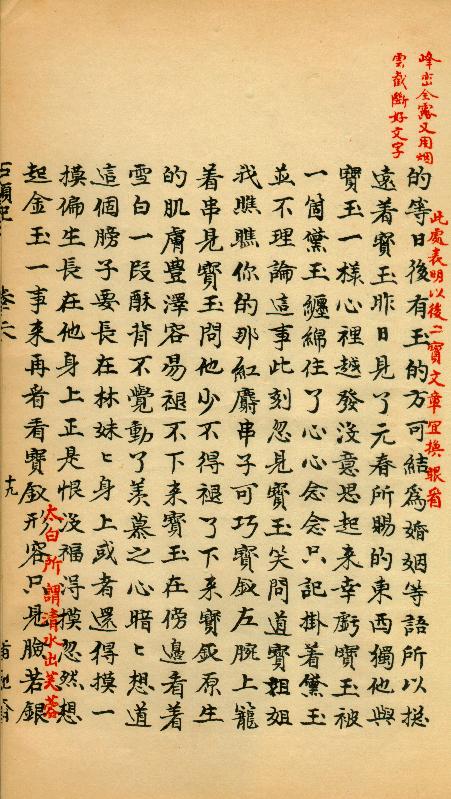 峰巒全露又用烟
雲截斷好文字
此處表明以後二寶文章宜換眼看
的等日後有玉的方可結為婚姻等語所以捴
遠着寶玉昨日見了元春所賜的東西獨他與
寶玉一樣心裡越發沒意思起來幸虧寶玉被
一個黛玉纏綿住了心心念念只記掛着黛玉
並不理論這事此刻忽見寶玉笑問道寶姐姐
我瞧瞧你的那紅麝串子可巧寶釵左腕上籠
着串見寶玉問他少不得褪了下來寶釵原生
的肌膚豐澤容易褪不下來寶玉在傍邊看着
雪白一段酥背不覺動了羨慕之心暗〻想道
這個膀子要長在林妹〻身上或者還得摸一
摸偏生長在他身上正是恨沒福得摸忽然想
太白所謂清水出芙蓉
起金玉一事來再看看寶釵形容只見臉若銀
十九